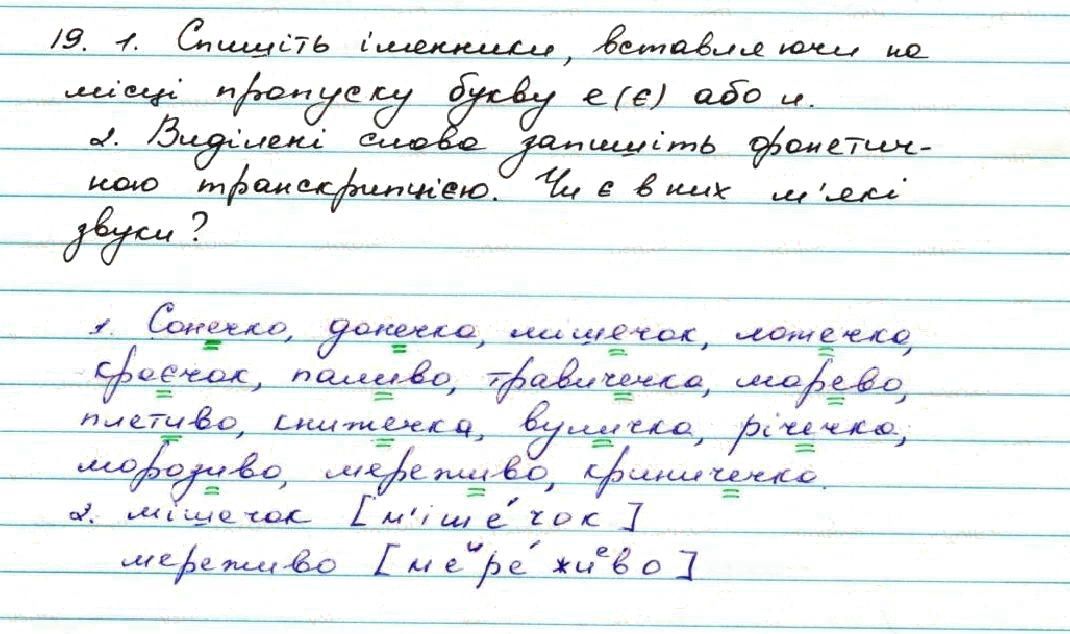 19. 1. Спишіть іменники, вставляючи на
місці пропуску букву е(є) або и.
2. Виділені слова запишіть фонетич-
ною транскрипцією. Чи є в них м'які
звуки?
1. Сонечко, донечка, мішечок, ложечка,
краєчок, паливо, травичечка, марево,
плетиво, книжечка, вуличка, річечка,
морозиво, мереживо, криничечка.
2. мішечок [м'іше́чок]
мереживо [меᶦре́жиᵉво]